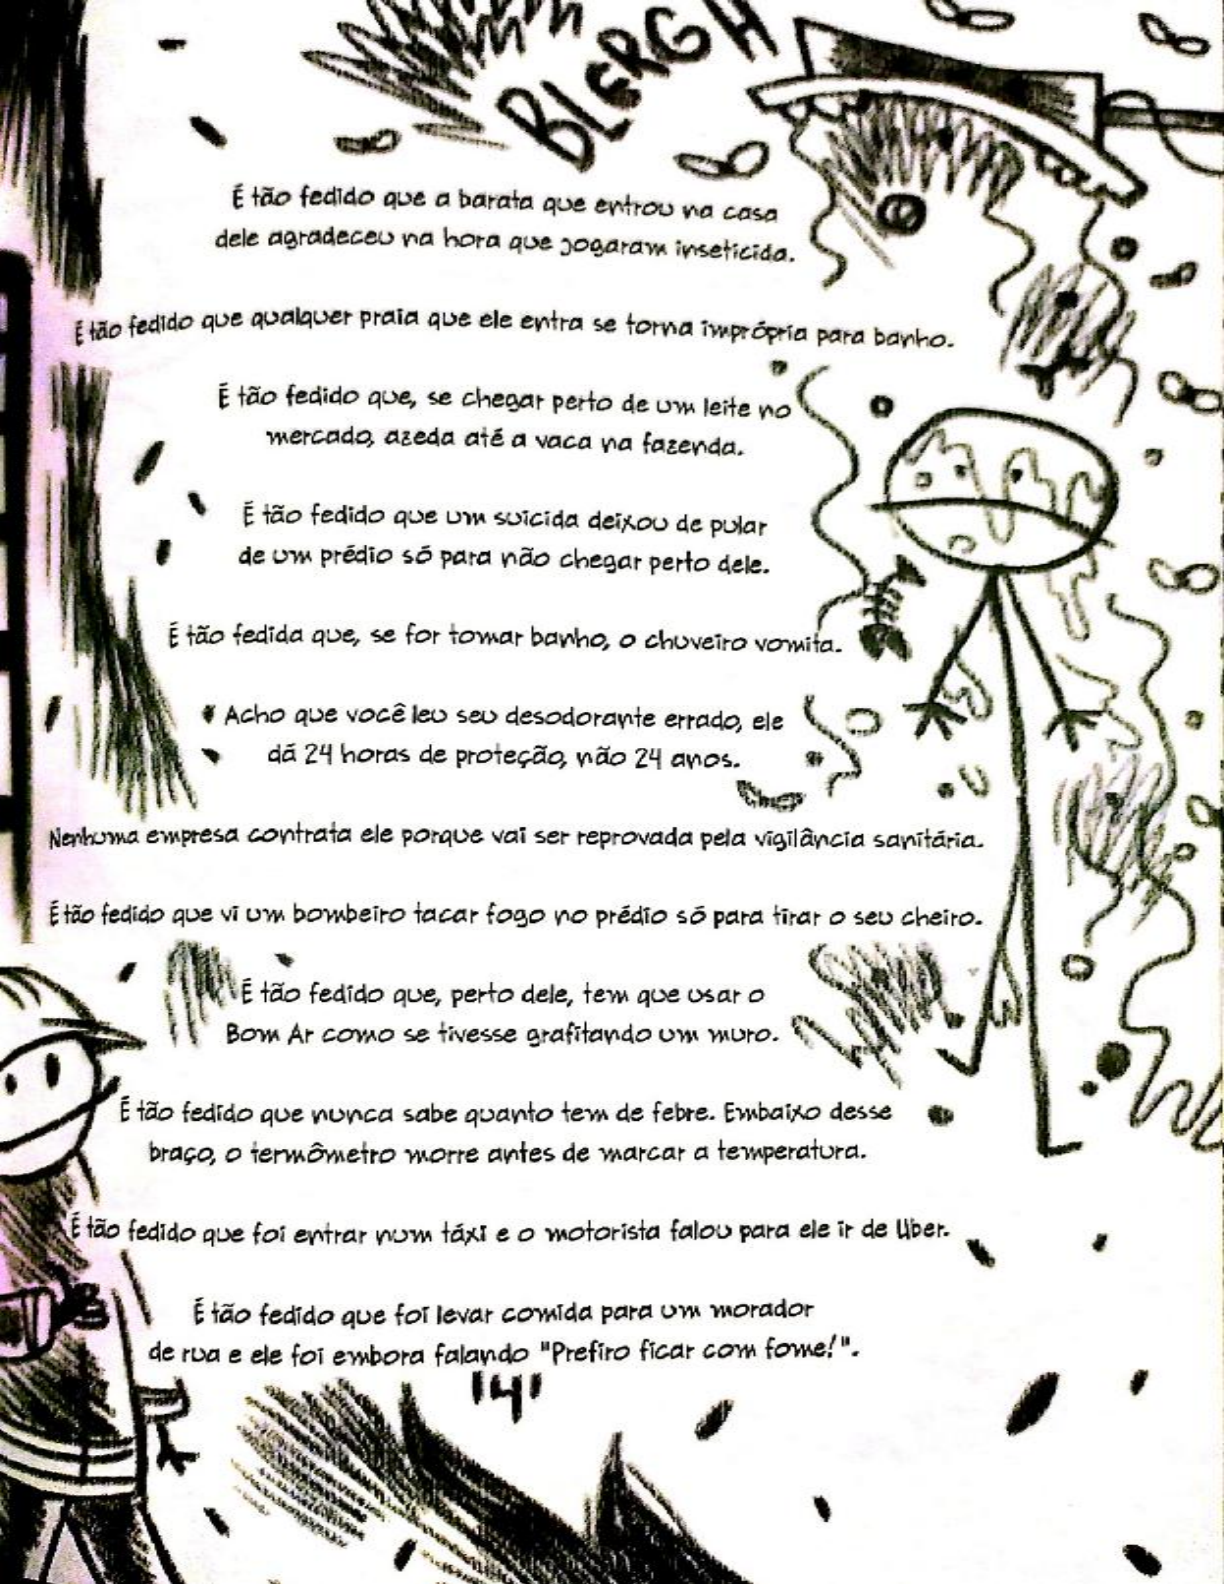 BLERGH
É tão fedido que a barata que entrou na casa
dele agradeceu na hora que jogaram inseticida.
É tão fedido que qualquer praia que ele entra se torna imprópria para banho.
É tão fedido que, se chegar perto de um leite no
mercado, azeda até a vaca na fazenda.
É tão fedido que um suicida deixou de pular
de um prédio só para não chegar perto dele.
É tão fedida que, se for tomar banho, o chuveiro vomita.
Acho que você leu seu desodorante errado, ele
dá 24 horas de proteção, não 24 anos.
Nenhuma empresa contrata ele porque vai ser reprovada pela vigilância sanitária.
É tão fedido que vi um bombeiro tacar fogo no prédio só para tirar o seu cheiro.
É tão fedido que, perto dele, tem que usar o
Bom Ar como se tivesse grafitando um muro.
É tão fedido que nunca sabe quanto tem de febre. Embaixo desse
braço, o termômetro morre antes de marcar a temperatura.
É tão fedido que foi entrar num táxi e o motorista falou para ele ir de Uber.
É tão fedido que foi levar comida para um morador
de rua e ele foi embora falando "Prefiro ficar com fome!".
'14'